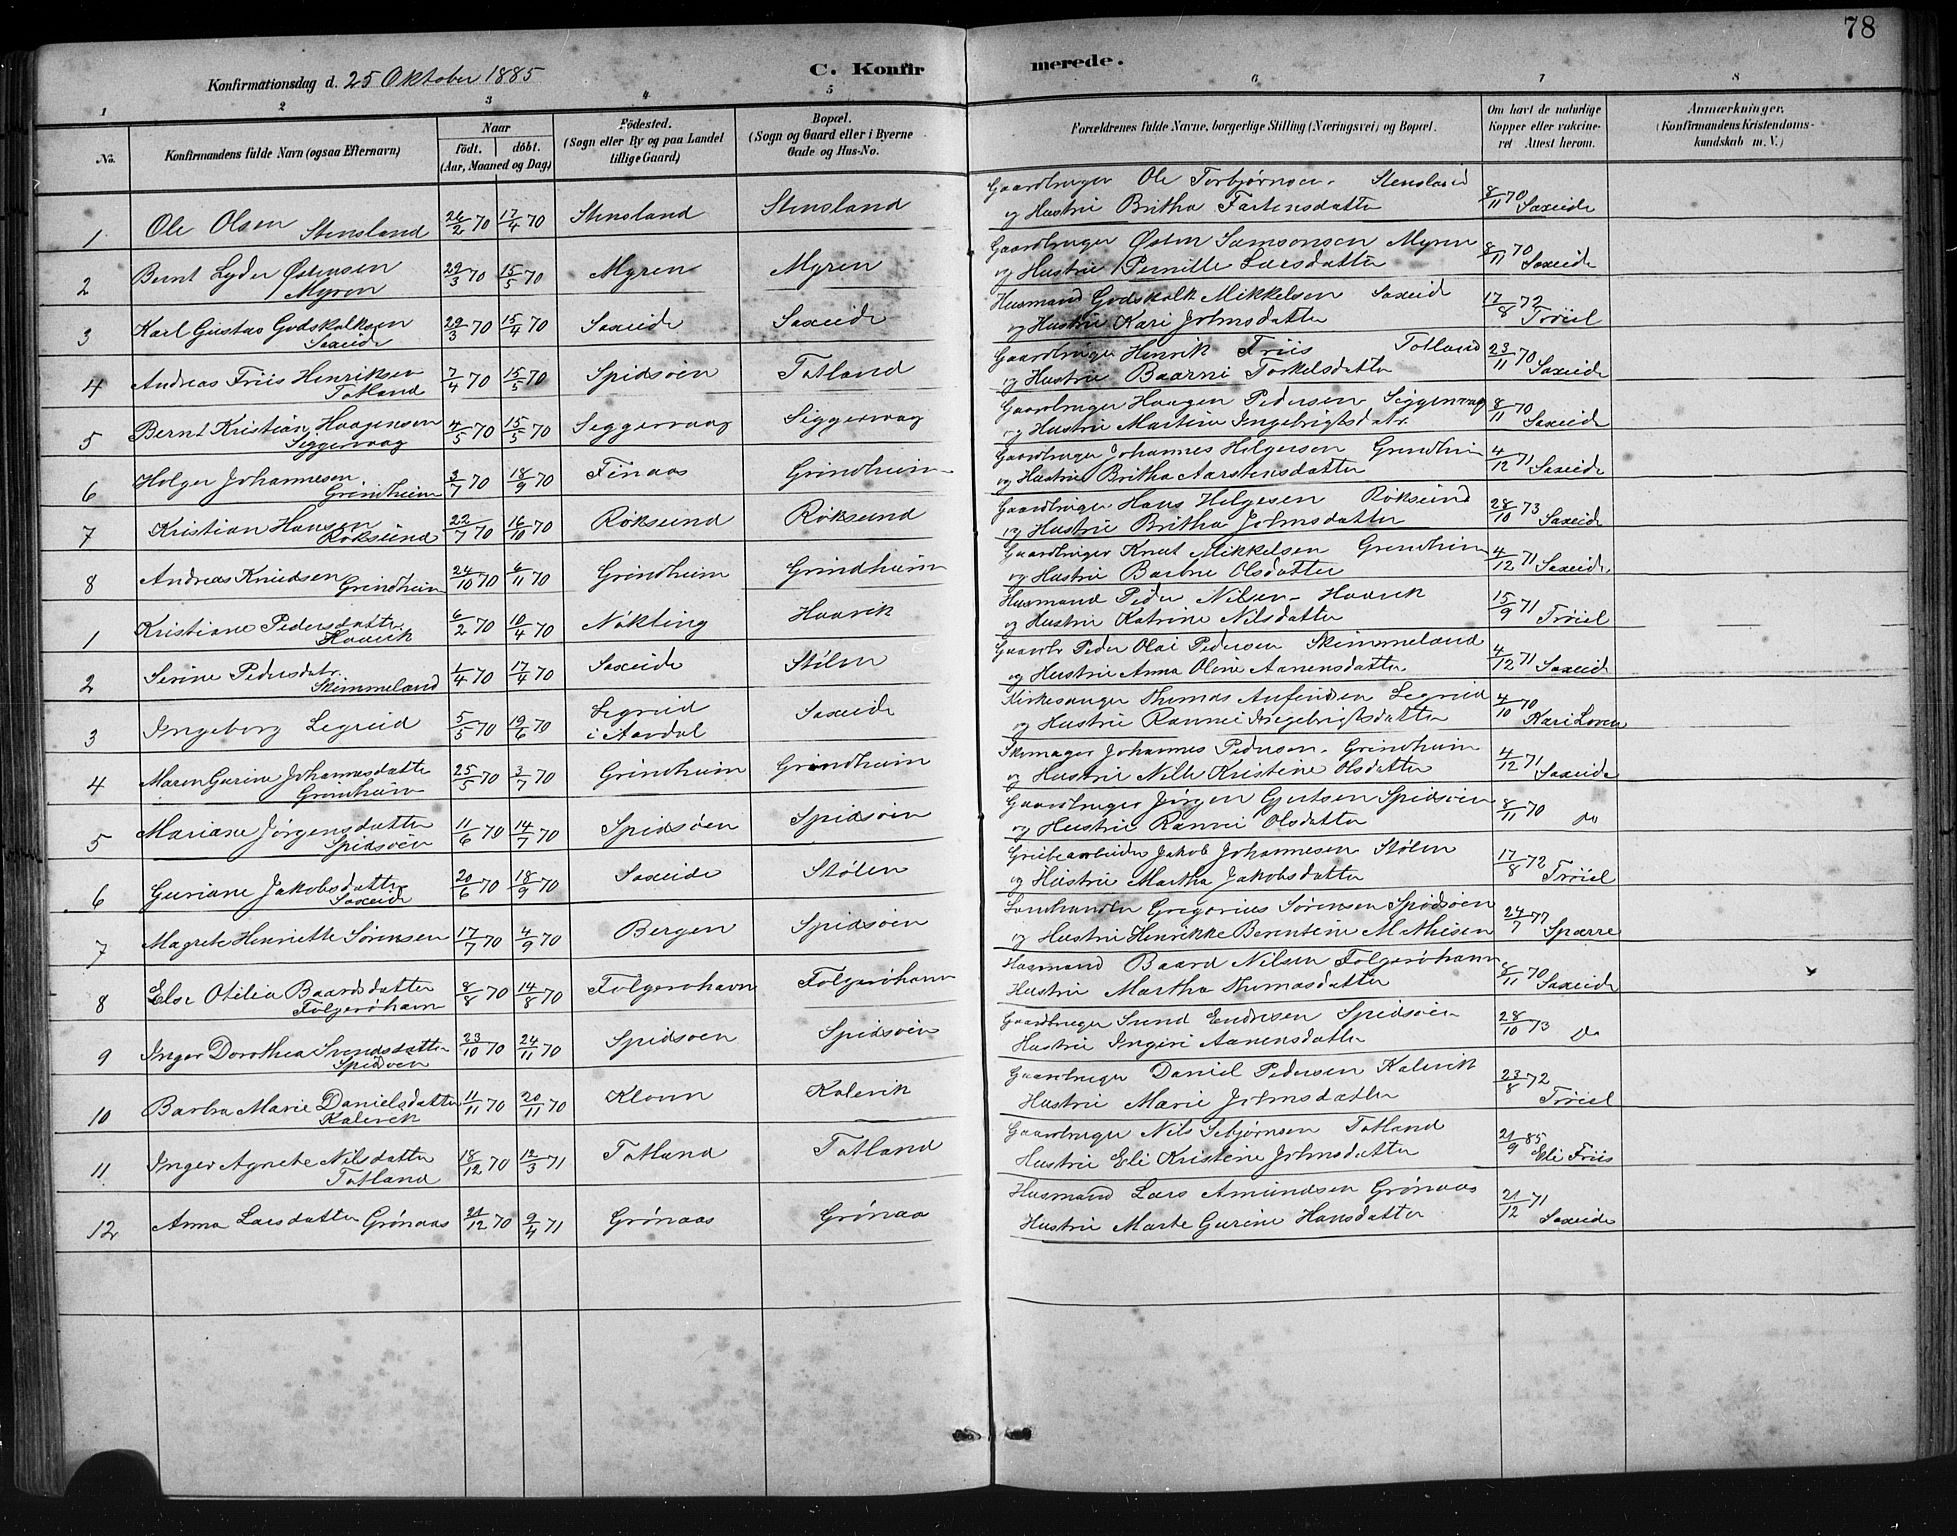 78
Konfirmationsdag d. 25 Oktober 1885
C. Konfirmerede.
1 2 3 4 5 6 7 8
No.
Konfirmandens fulde Navn (ogsaa Efternavn)
Naar
födt. döbt.
(Aar, Maaned og Dag)
Födested.
(Sogn eller By og paa Landet
tillige Gaard)
Bopæl.
(Sogn og Gaard eller i Byerne
Gade og Hus-No.
Forældrenes fulde Navne, borgerlige Stilling (Næringsvei) og Bopæl.
Om havt de naturlige
Kopper eller vakcine-
ret Attest herom.
Anmærkninger.
(Konfirmandens Kristendoms-
kundskab m. V.)
1 Ole Olsen Stensland 26/2 70 17/4 70 Stensland Stensland Gaardbruger Ole Torbjørnsen Stensland
og Hustru Britha 8/11 70 Saxeide
2 Bernt Lyder Østensen Myren 29/3 70 15/5 70 Myren Myren Gaardbruger Østen Samsonsen Myren
og Hustru Pernille Larsdatter 8/11 70 Saxeide
3 Karl Gustav Godskalksen Saxeide 29/3 70 15/4 70 Saxeide Saxeide Husmand Godskalk Mikkelsen Saxeid
og Hustru Kari Johnsdatter 17/8 72 Trøiel
4 Andreas Friis Henriksen Totland 7/4 70 15/5 70 Spidsøen Totland Gaardbruger Henrik Friis Totland
og Hustru Baarni Torkelsdatter 23/11 70 Saxeide
5 Bernt Kristian Haagensen Siggervaag 4/5 70 15/5 70 Seggervaag Siggervaag Gaardbruger Haagen Pedersen Siggervaag
og Hustru Martine Ingebrigtsdatr. 8/11 70 Saxeide
6 Holger Johannesen Grindheim 3/7 70 18/9 70 Finaas Grindheim Gaardbruger Johannes Helgesen Grindheim
og Hustru Britha Aarstensdatter 4/12 71 Saxeide
7 Kristian Hansen Røksund 22/7 70 16/10 70 Røksund Røksund Gaardbruger Hans Helgesen Røksund
og Hustru Britha Johnsdatter 28/10 73 Saxeide
8 Andreas Knudsen Grindheim 24/10 70 6/11 70 Grindheim Grindheim Gaardbruger Knut Mikkelsen Grindheim
og Hustru Barbru Olsdatter 4/12 71 Saxeide
1 Kristiane Pedersdattr. Haavik 6/2 70 10/4 70 Nøkting Haavik Husmand Peder Nilsen Haavik
og Hustru Katrine Nilsdatter 15/9 71 Trøiel
2 Serine Pedersdatr. Skimmeland 1/4 70 17/4 70 Saxeide Stølen Gaardbr Peder Olai Pedersen Skimmeland
og Hustru Anna Oline Aanensdatter 4/12 71 Saxeide
3 Ingeborg Legreid 5/5 70 19/6 70 Legreid i Aardal Saxeide Kirkesanger Thomas Anfindsen Legreid
og Hustru Rannei Ingebrigtsdatter 4/10 70 Kari Loven
4 Maren Gurine Johannesdatter Grindheim 25/5 70 3/7 70 Grindheim Grindheim Skomager Johannes Pedersen Grindheim
og Hustru Nille Kristine Olsdatter 4/12 71 Saxeide
5 Mariane Jørgensdatter Spidsøen 11/6 70 14/7 70 Spidsøen Spidsøen Gaardbruger Jørgen Gjertsen Spidsøen
og Hustru Rannei Olsdatter 8/11 70 do
6 Guriane Jakobsdatter Saxeide 20/6 70 18/9 70 Saxeide Stølen Grubearbeider Jakob Johannesen Stølen
og Hustru Martha Jakobsdatter 17/8 72 Trøiel
7 Magrete Henriette Sørensen 17/7 70 4/9 70 Bergen Spidsøen Landhandler Gregorius Sørensen Spidsøen
og Hustru Henrikke Berentine Mathisen 24/7 77 Sparre
8 Else Otilia Baardsdatter Folgerøhavn 8/8 70 14/8 70 Folgerøhavn Folgerøhavn Husmand Baard Nilsen Folgerøhavn
Hustru Martha Thomasdatter 8/11 70 Saxeide
9 Inger Dorothea Svendsdatter Spidsøen 23/10 70 24/11 70 Spidsøen Spidsøen Gaardbruger Svend Endresen Spidsøen
Hustru Ingeri Aanensdatter 28/10 73 do
10 Barbra Marie Danielsdatter Kalevik 11/11 70 20/11 70 Kalevik Gaardbruger Daniel Pedersen Kalevik
Hustru Marie Johnsdatter 23/8 72 Trøiel
11 Inger Agnete Nilsdatter Totland 18/12 70 12/3 71 Totland Totland Gaardbruger Nils Sebjørnsen Totland
Hustru Eli Kristine Johnsdatter 21/9 85 Eli Friis
12 Anna Larsdatter Grønaas 21/12 70 9/4 71 Grønaas Grønaas Husmand Lars Amundsen Grønaas
Hustru Marte Gurine Hansdatter 21/12 71 Saxeide